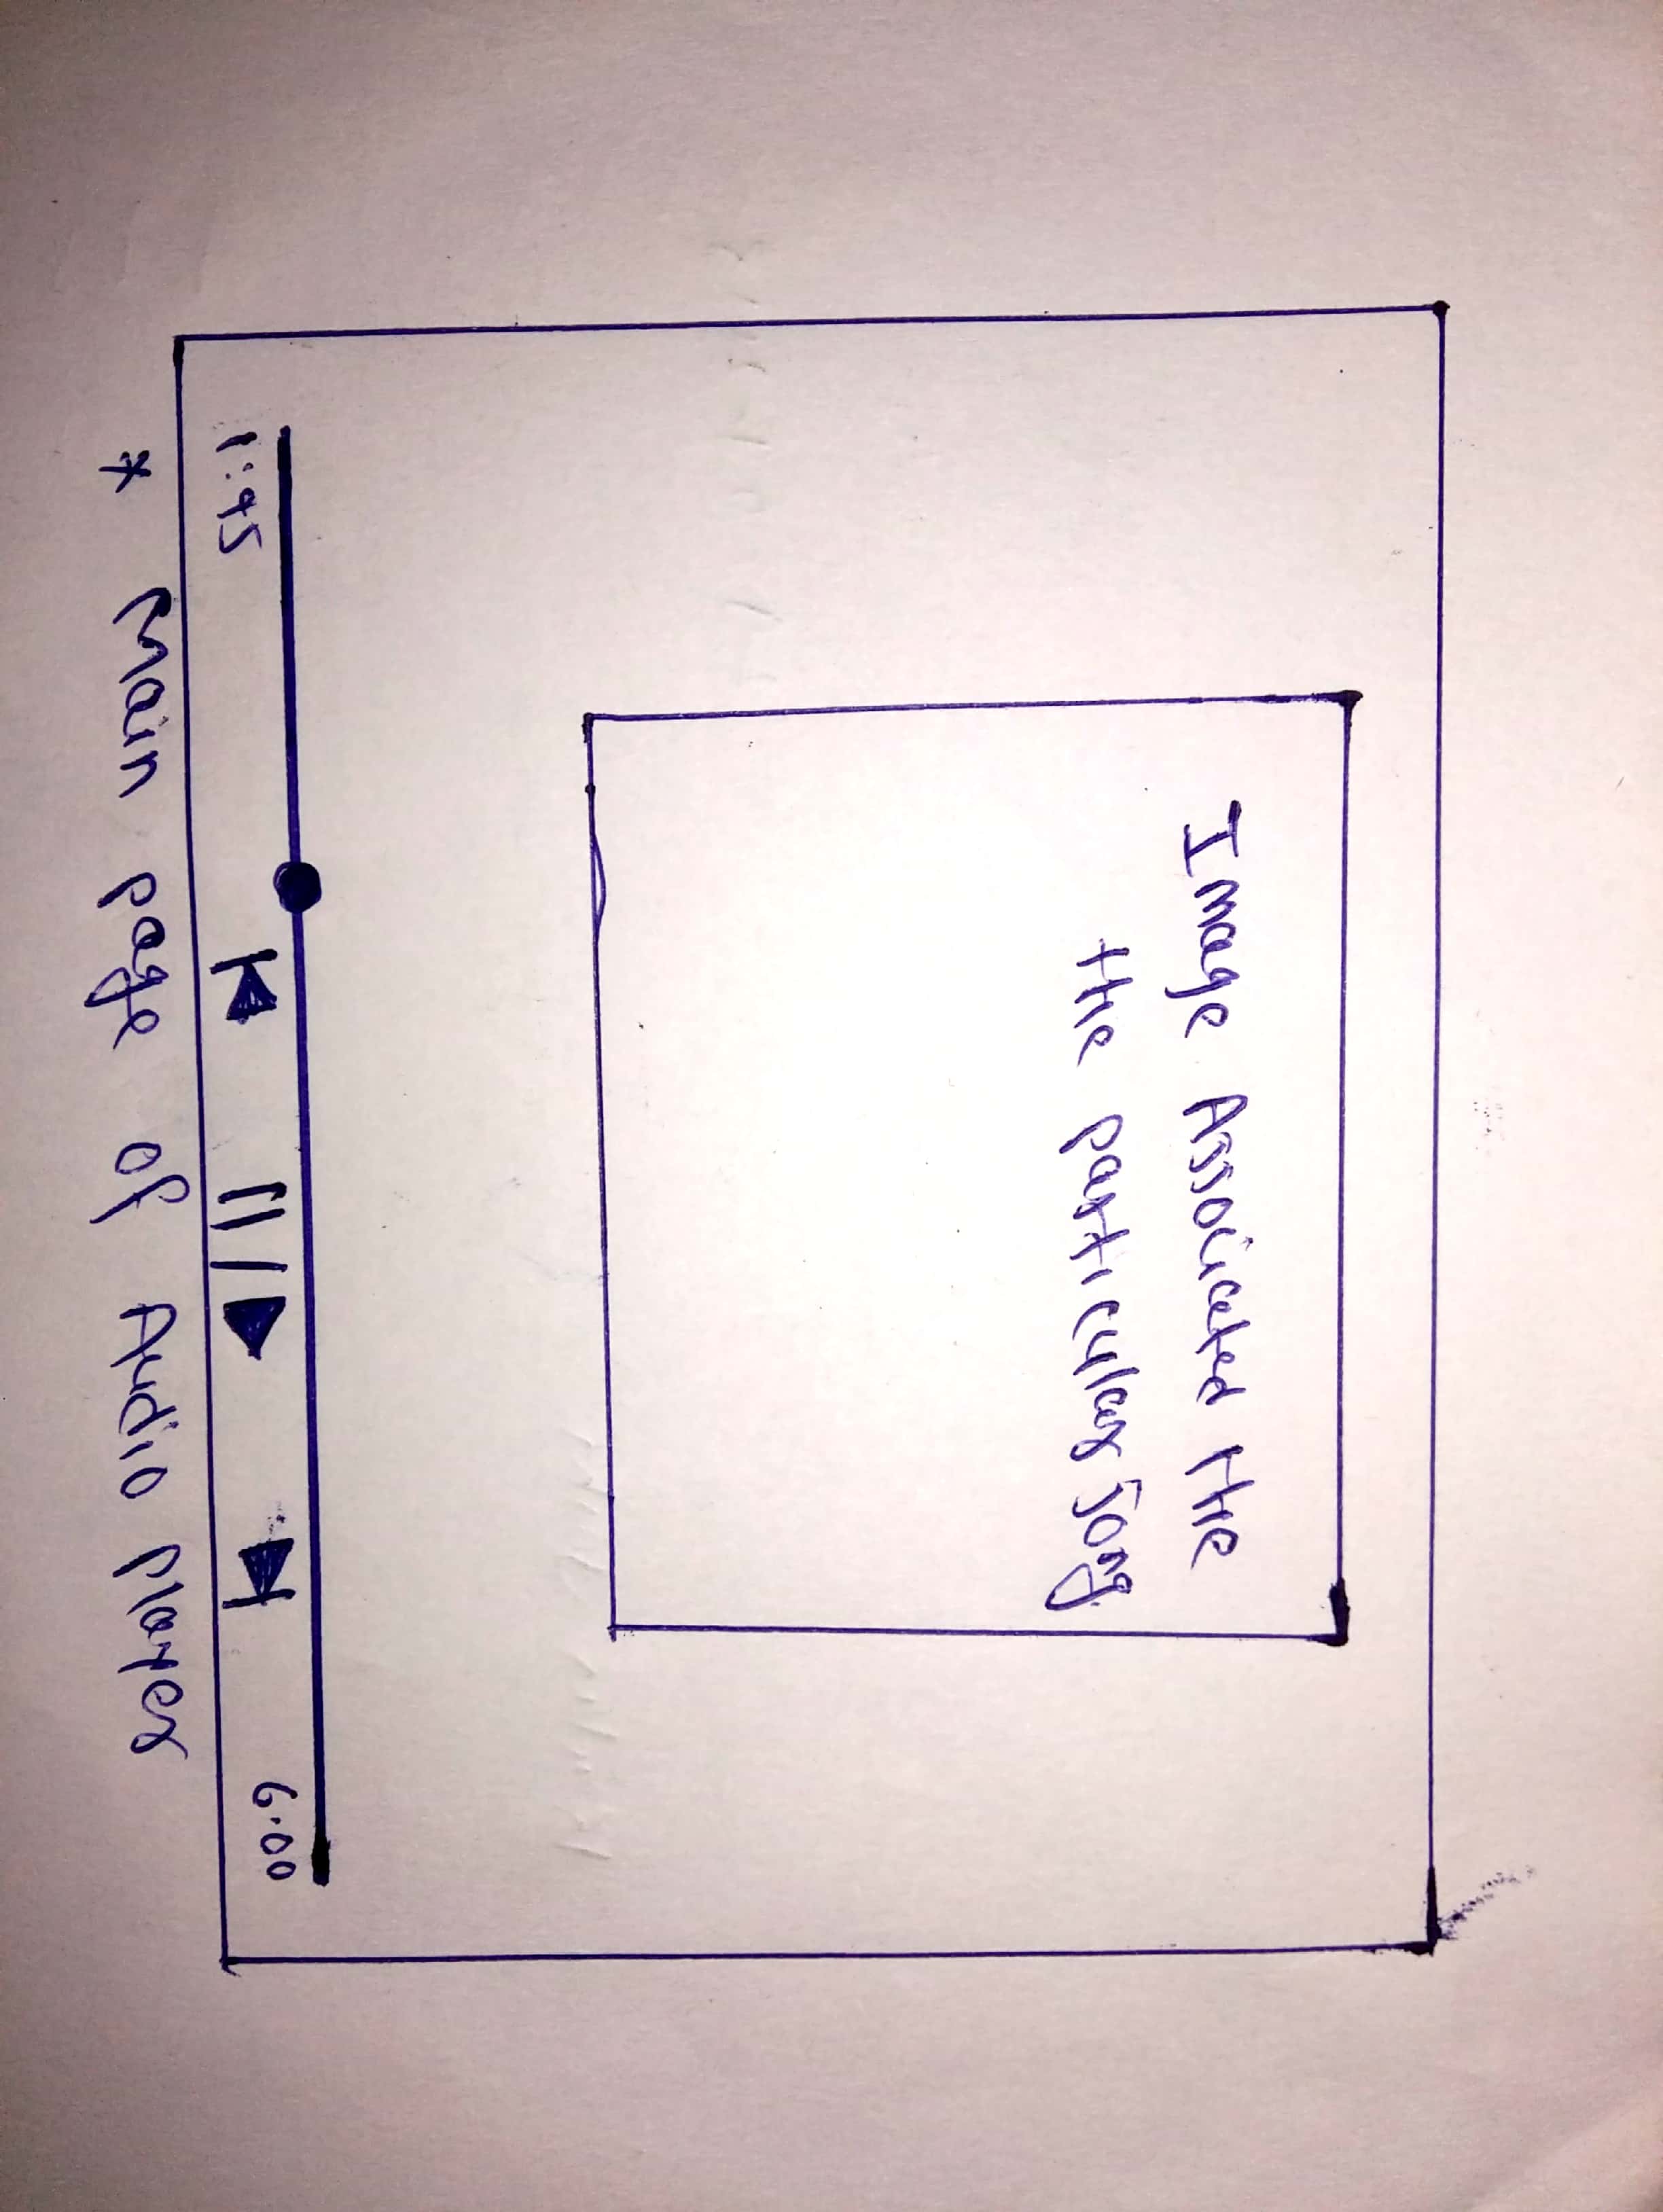 Image Associated the
the particular song
1:45
6.00
* Main page of Audio player